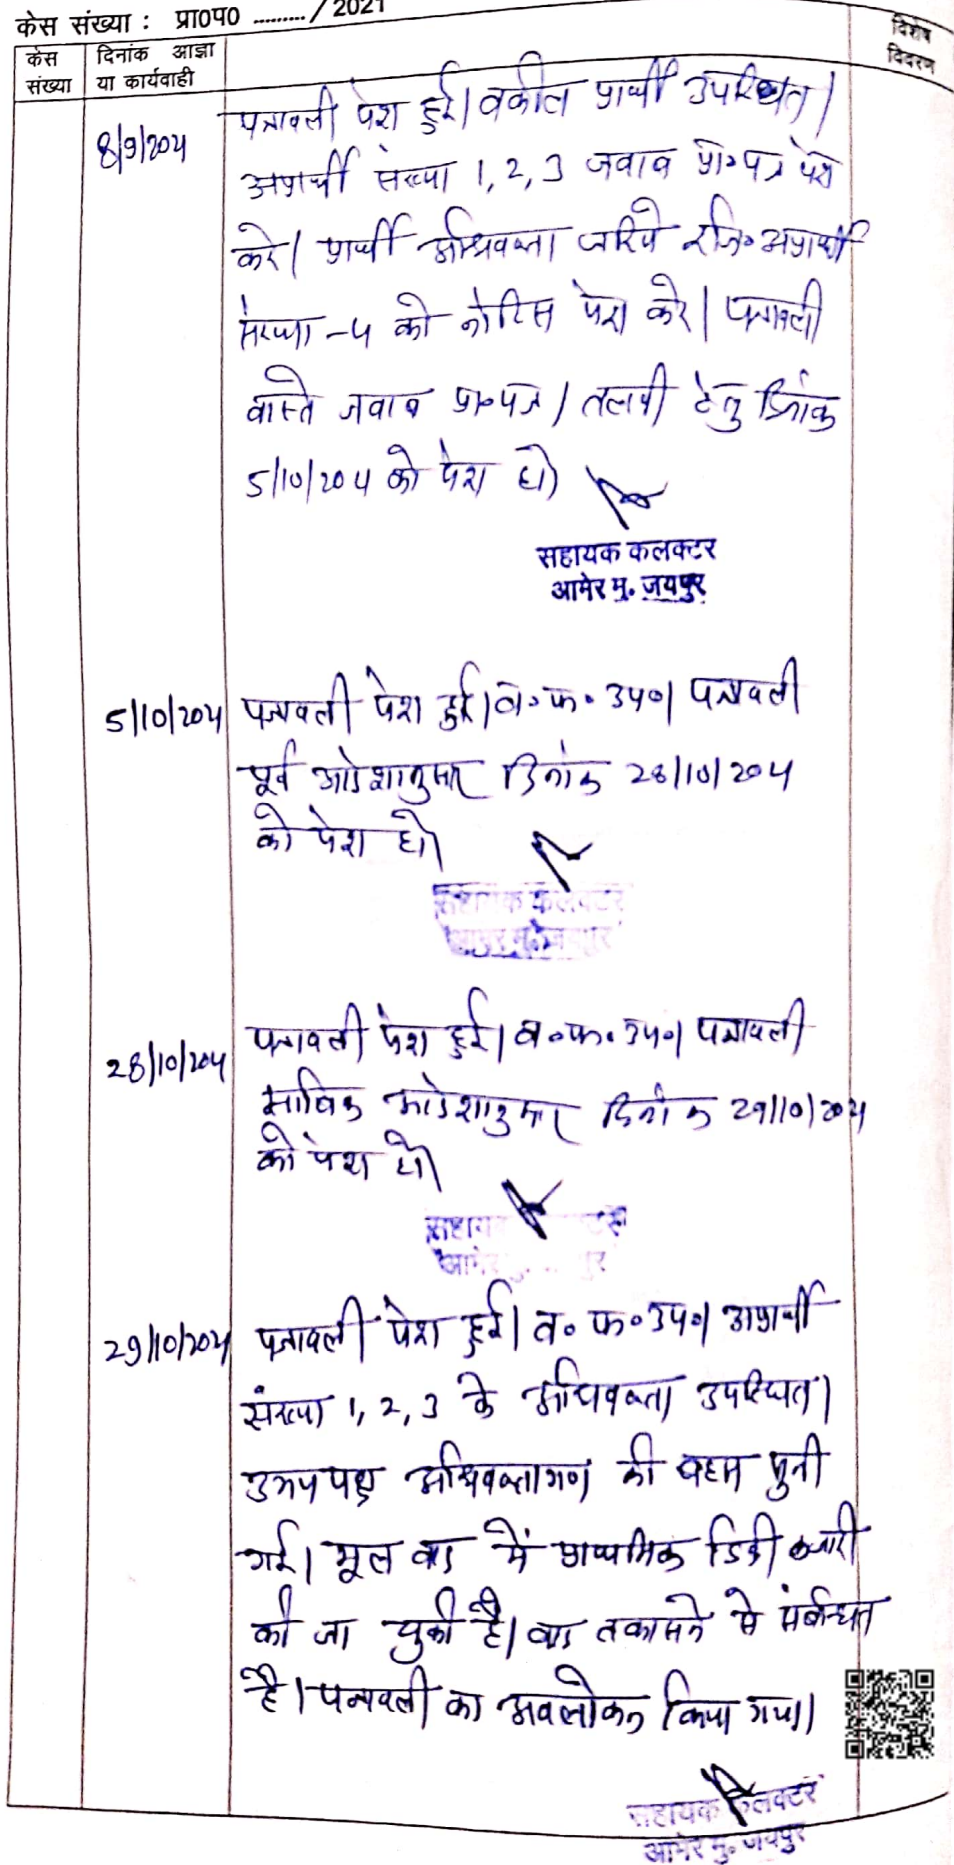 केस संख्या : प्रा०प० ......... / 2021
केस संख्या
दिनांक आज्ञा या कार्यवाही
विशेष विवरण
8/9/2021
पत्रावली पेश हुई। वकील प्रार्थी उपस्थित।
अप्रार्थी संख्या 1, 2, 3 जवाब प्रा०पत्र पेश
करे। प्रार्थी अधिवक्ता जरिये रजि० अप्रार्थी
संख्या -4 को नोटिस पेश करे। पत्रावली
वास्ते जवाब प्रा०पत्र / तलबी हेतु दिनांक
5/10/2021 को पेश हो।
सहायक कलक्टर
आमेर मु. जयपुर
5/10/2021
पत्रावली पेश हुई। व० फ० उप०। पत्रावली
पूर्व आदेशानुसार दिनांक 28/10/2021
को पेश हो।
सहायक कलक्टर
आमेर मु. जयपुर
28/10/2021
पत्रावली पेश हुई। व०फ० उप०। पत्रावली
साबिक आदेशानुसार दिनांक 29/10/2021
को पेश हो।
29/10/2021
पत्रावली पेश हुई। व० फ० उप०। अप्रार्थी
संख्या 1, 2, 3 के अधिवक्ता उपस्थित।
उभय पक्ष अधिवक्तागण की बहस सुनी
गई। मूल वाद में प्राथमिक डिक्री जारी
की जा चुकी है। वाद तकासमे से संबंन्धित
है। पत्रावली का अवलोकन किया गया।
सहायक कलक्टर
आमेर मु. जयपुर